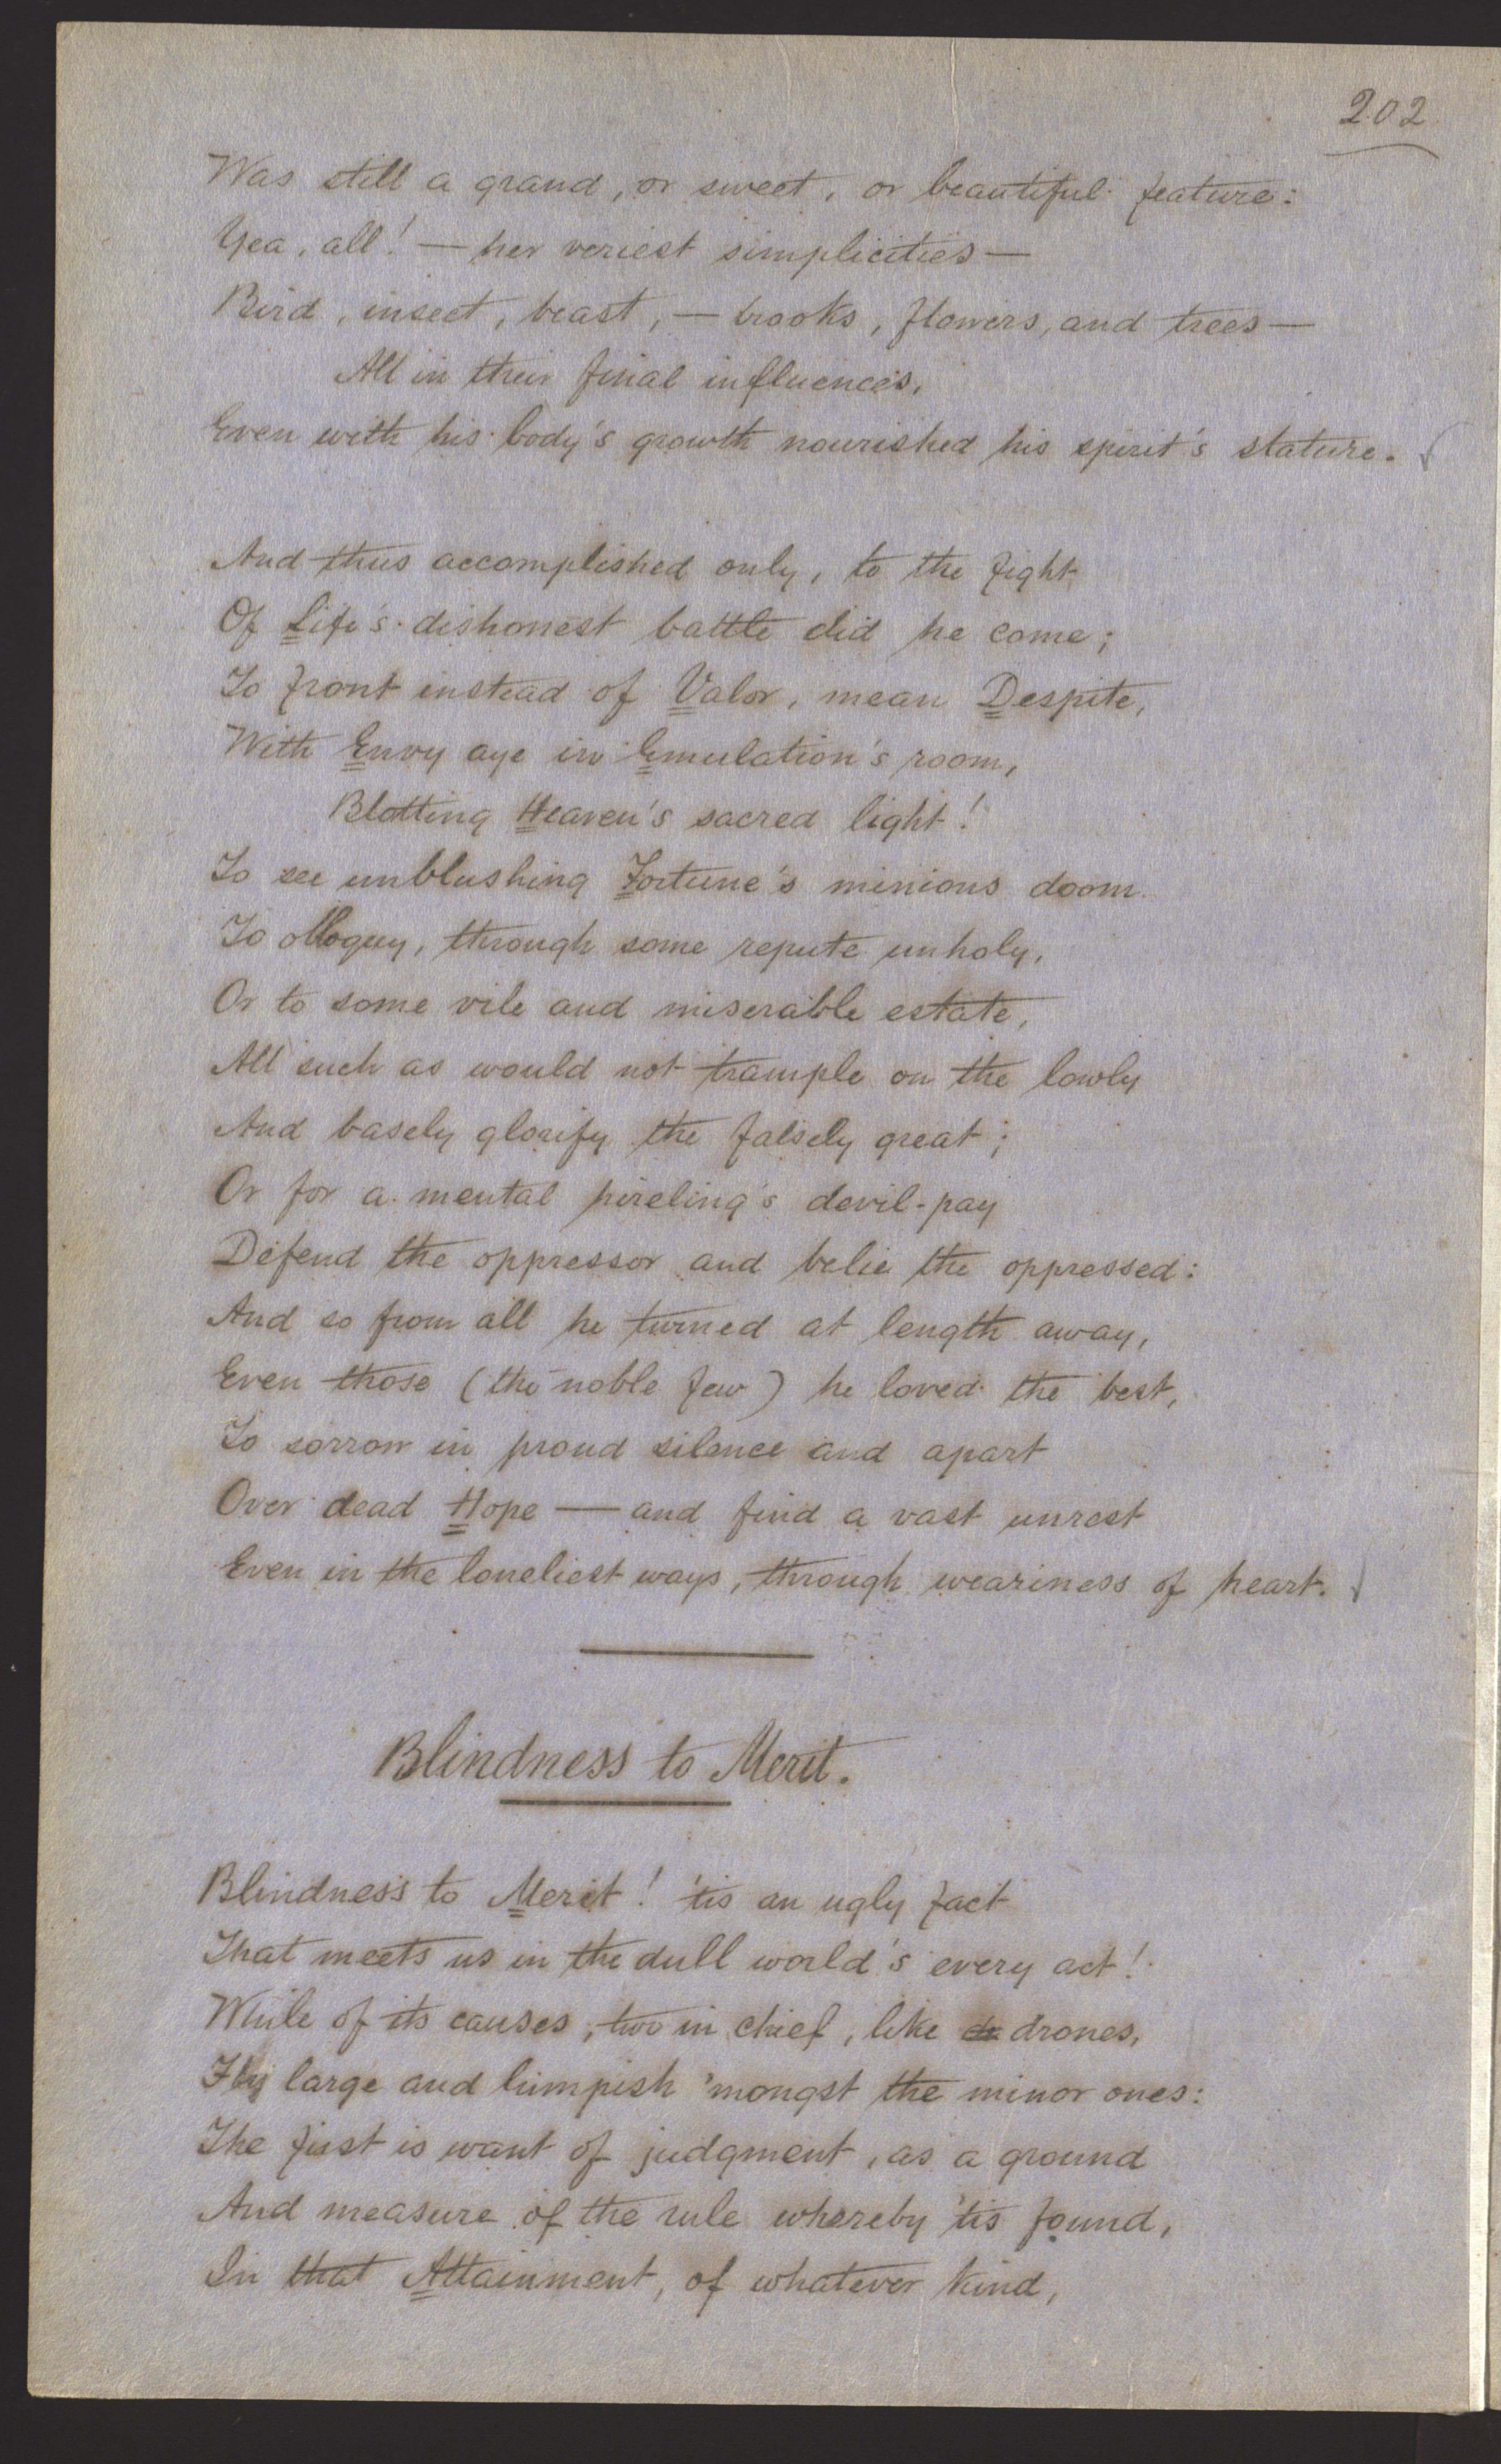 202
Was still a grand, or sweet, or beautiful feature:
Yea, all! — her veriest simplicities —
Bird, insect, beast, — brooks, flowers, and trees —
All in their final influences,
Even with his body's growth nourished his spirit's stature.
And thus accomplished only, to the fight
Of Life's dishonest battle did he come;
To front instead of Valor, mean Despite,
With Envy aye in Emulation's room,
Blotting Heaven's sacred light!
To see unblushing Fortune's minions doom
To obloquy, through some repute unholy,
Or to some vile and miserable estate,
All such as would not trample on the lowly
And basely glorify the falsely great;
Or for a mental hireling's devil-pay
Defend the oppressor and belie the oppressed:
And so from all he turned at length away,
Even those (the noble few) he loved the best,
To sorrow in proud silence and apart
Over dead Hope — and find a vast unrest
Even in the loneliest ways, through weariness of heart.
Blindness to Merit.
Blindness to Merit! 'tis an ugly fact
That meets us in the dull world's every act!
While of its causes, two in chief, like dr drones,
Fly large and lumpish 'mongst the minor ones:
The first is want of judgment, as a ground
And measure of the rule whereby 'tis found,
In that Attainment, of whatever kind,